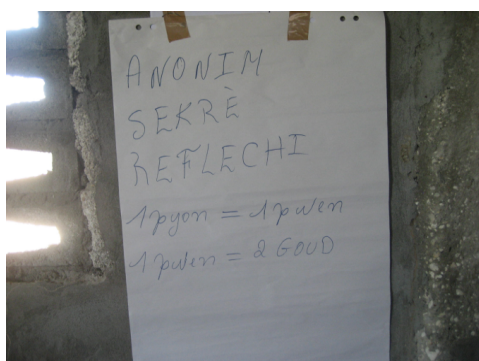 ANONIM
SEKRÈ
REFLECHI
1 pyon = 1 pwen
1 pwen = 2 GOUD